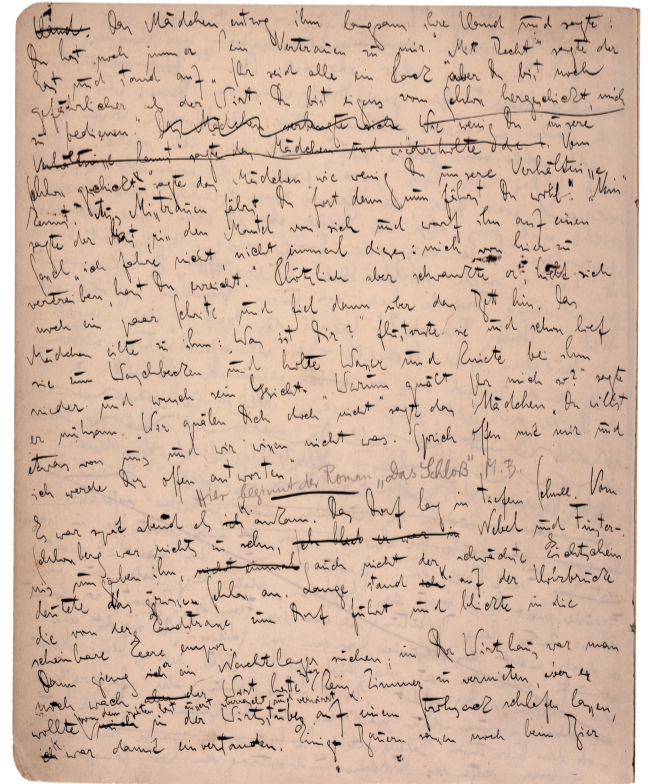 Hand. Das Mädchen entzog ihm langsam ihre Hand und sagte:
Du hast noch immer kein Vertrauen zu mir." "Mit Recht" sagte der
Gast und stand auf. "Ihr seid alle ein Pack aber Du bist noch
gefährlicher als der Wirt. Du bist eigens vom Schloss hergeschickt, mich
zu bedienen." Wie wenig Du unsere
Verhältnisse kennst" sagte das Mädchen und wiederholte "Vom
Schloss geschickt" sagte das Mädchen wie wenig Du unsere Verhältnisse
kennst. Aus Misstrauen fährst Du fort denn nun fährst Du wohl." "Nein"
sagte der Gast, riss den Mantel von sich und warf ihn auf einen
Sessel, "ich fahre nicht, nicht einmal dieses: mich von hier zu
vertreiben, hast Du erreicht." Plötzlich aber schwankte er, hielt sich
noch ein paar Schritte und fiel dann über das Bett hin. Das
Mädchen eilte zu ihm: Was ist Dir?" flüsterte sie und schon lief
sie zum Waschbecken und holte Wasser und kniete bei ihm
nieder und wusch sein Gesicht. "Warum quält Ihr mich so?" sagte
er mühsam. "Wir quälen Dich doch nicht" sagte das Mädchen. Du willst
etwas von uns und wir wissen nicht was. Sprich offen mit mir und
ich werde Dir offen antworten"
Hier beginnt der Roman „Das Schloß". M. B.
Es war spät abend als ich ankam. Das Dorf lag in tiefem Schnee. Vom
Schlossberg war nichts zu sehn, Nebel und Finster-
nis umgaben ihn, nicht einmal auch nicht der schwächste Lichtschein
deutete das grosse Schloss an. Lange stand ich K. auf der Holzbrücke
die von der Landstrasse zum Dorf führt und blickte in die
scheinbare Leere empor.
Dann gieng ich er ein Nachtlager suchen; im Wirtshaus war man
noch wach der Wirt hatte zwar kein Zimmer zu vermieten aber er
wollte von dem späten Gast äusserst überrascht und verwirrt K. in der Wirtsstube auf einem Strohsack schlafen lassen,
ich K. war damit einverstanden. Einige Bauern waren noch beim Bier